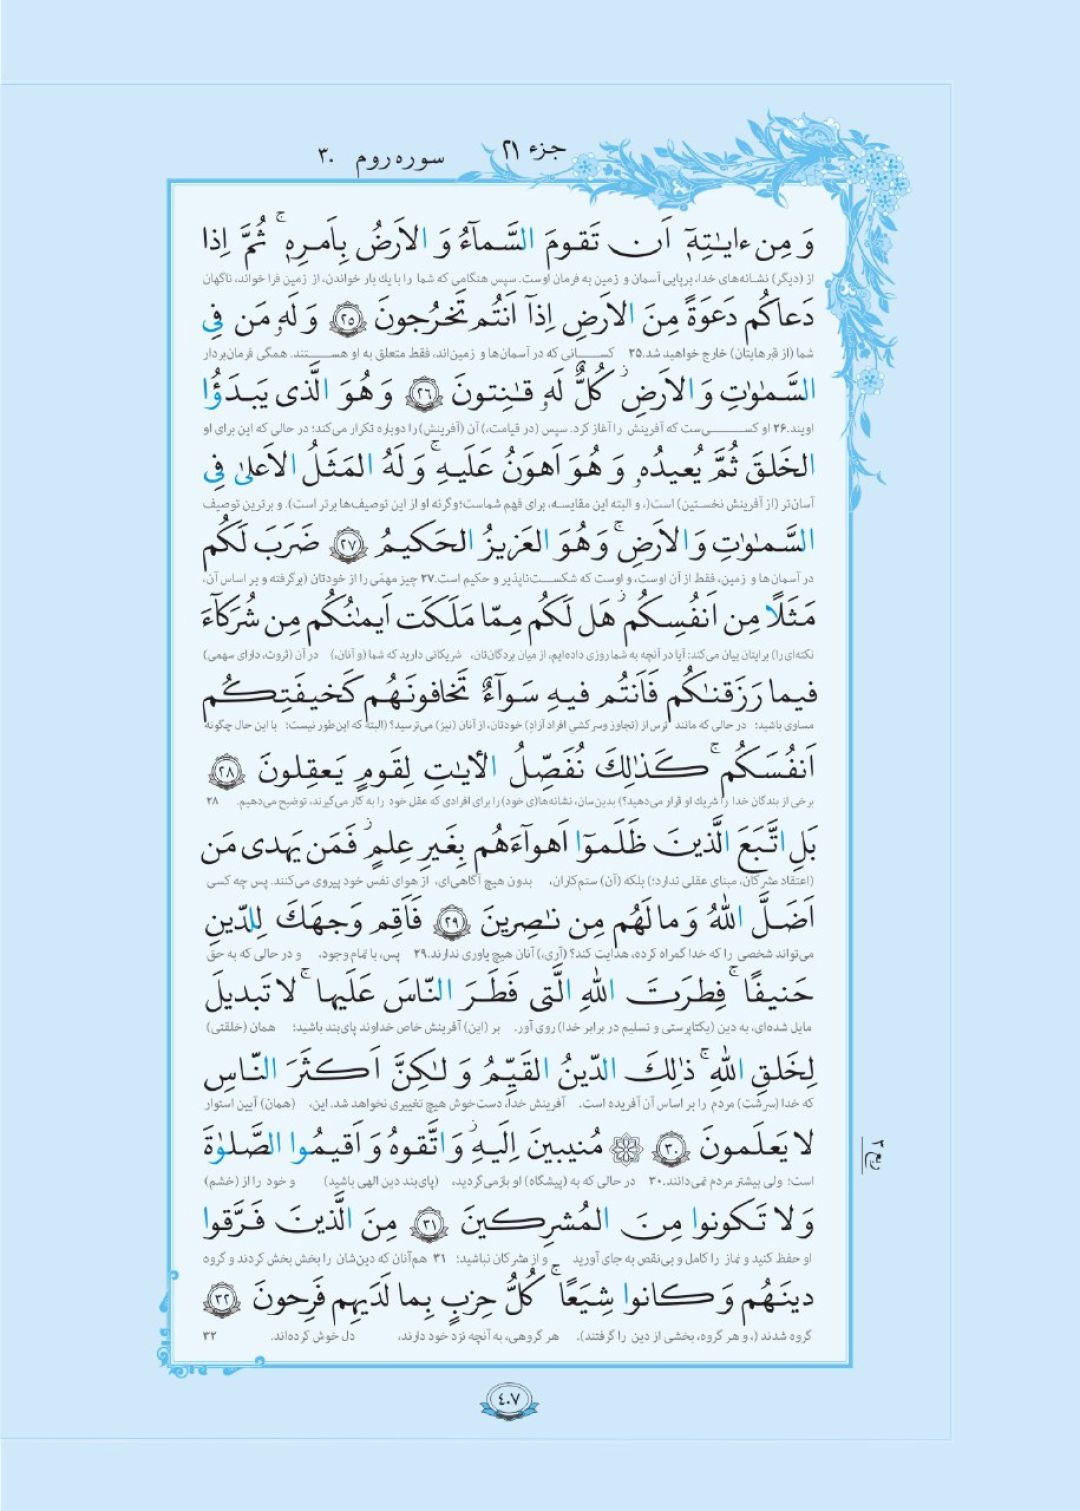 جزء ۲۱
سوره روم ۳۰
وَ مِن ءایـٰتِهِۤ اَن تَقومَ السَّماۤءُ وَ الاَرضُ بِاَمرِهِ ۚ ثُمَّ اِذا
از (دیگر) نشانه‌های خدا، برپایی آسمان و زمین به فرمان اوست. سپس هنگامی که شما را با یک بار خواندن، از زمین فرا خواند، ناگهان
دَعاکُم دَعوَةً مِنَ الاَرضِ اِذاۤ اَنتُم تَخرُجونَ ﴿۲۵﴾ وَ لَهُ مَن فِی
شما (از قبرهایتان) خارج خواهید شد.۲۵ کسانی که در آسمان‌ها و زمین‌اند، فقط متعلق به او هستند. همگی فرمان‌بردار
السَّمـٰوٰتِ وَ الاَرضِ ۖ کُلٌّ لَهُ قـٰنِتونَ ﴿۲۶﴾ وَ هُوَ الَّذی یَبدَؤُا
اویند.۲۶ او کسی‌ست که آفرینش را آغاز کرد. سپس (در قیامت،) آن (آفرینش) را دوباره تکرار می‌کند؛ در حالی که این برای او
الخَلقَ ثُمَّ یُعیدُهُ وَ هُوَ اَهوَنُ عَلَیهِ ۚ وَ لَهُ المَثَلُ الاَعلیٰ فِی
آسان‌تر (از آفرینش نخستین) است(، و البته این مقایسه، برای فهم شماست؛ وگرنه او از این توصیف‌ها برتر است). و برترین توصیف
السَّمـٰوٰتِ وَ الاَرضِ ۚ وَ هُوَ العَزیزُ الحَکیمُ ﴿۲۷﴾ ضَرَبَ لَکُم
در آسمان‌ها و زمین، فقط از آن اوست، و اوست که شکست‌ناپذیر و حکیم است.۲۷ چیز مهمّی را از خودتان (برگرفته و بر اساس آن،
مَثَلًا مِن اَنفُسِکُم ۖ هَل لَکُم مِمّا مَلَکَت اَیمـٰنُکُم مِن شُرَکاۤءَ
نکته‌ای را) برایتان بیان می‌کند: آیا در آنچه به شما روزی داده‌ایم، از میان بردگان‌تان، شریکانی دارید که شما (و آنان،) در آن (ثروت، دارای سهمی)
فیما رَزَقنـٰکُم فَاَنتُم فیهِ سَواۤءٌ تَخافونَهُم کَخیفَتِکُم
مساوی باشید؛ در حالی که مانند ترس از (تجاوز و سرکشیِ افراد آزادِ) خودتان، از آنان (نیز) می‌ترسید؟ (البته که این‌طور نیست؛ با این حال چگونه
اَنفُسَکُم ۚ کَذٰلِکَ نُفَصِّلُ الاٰیـٰتِ لِقَومٍ یَعقِلونَ ﴿۲۸﴾
برخی از بندگان خدا را شریک او قرار می‌دهید؟) بدین‌سان، نشانه‌ها(ی خود) را برای افرادی که عقل خود را به کار می‌گیرند، توضیح می‌دهیم. ۲۸
بَلِ اتَّبَعَ الَّذینَ ظَلَموۤا اَهواۤءَهُم بِغَیرِ عِلمٍ ۖ فَمَن یَهدی مَن
(اعتقاد مشرکان، مبنای عقلی ندارد؛) بلکه (آن) ستم‌کاران، بدون هیچ آگاهی‌ای، از هوای نفس خود پیروی می‌کنند. پس چه کسی
اَضَلَّ اللّٰهُ وَ ما لَهُم مِن نـٰصِرینَ ﴿۲۹﴾ فَاَقِم وَجهَکَ لِلدّینِ
می‌تواند شخصی را که خدا گمراه کرده، هدایت کند؟ (آری،) آنان هیچ یاوری ندارند.۲۹ پس، با تمام وجود، و در حالی که به حق
حَنیفًا ۚ فِطرَتَ اللّٰهِ الَّتی فَطَرَ النّاسَ عَلَیها ۚ لا تَبدیلَ
مایل شده‌ای، به دین (یکتاپرستی و تسلیم در برابر خدا) روی آور. بر (این) آفرینش خاص خداوند پای‌بند باشید؛ همان (خلقتی)
لِخَلقِ اللّٰهِ ۚ ذٰلِکَ الدّینُ القَیِّمُ وَ لـٰکِنَّ اَکثَرَ النّاسِ
که خدا (سرشت) مردم را بر اساس آن آفریده است. آفرینش خدا، دست‌خوش هیچ تغییری نخواهد شد. این، (همان) آیین استوار
لا یَعلَمونَ ﴿۳۰﴾ ۞ مُنیبینَ اِلَیهِ ۖ وَ اتَّقوهُ وَ اَقیمُوا الصَّلوٰةَ
است؛ ولی بیشتر مردم نمی‌دانند.۳۰ در حالی که به (پیشگاه) او بازمی‌گردید، (پای‌بند دین الهی باشید) و خود را از (خشم)
وَ لا تَکونوا مِنَ المُشرِکینَ ﴿۳۱﴾ مِنَ الَّذینَ فَرَّقوا
او حفظ کنید و نماز را کامل و بی‌نقص به جای آورید و از مشرکان نباشید؛ ۳۱ هم‌آنان که دین‌شان را بخش بخش کردند و گروه
دینَهُم وَ کانوا شِیَعًا ۚ کُلُّ حِزبٍ بِما لَدَیهِم فَرِحونَ ﴿۳۲﴾
گروه شدند (، و هر گروه، بخشی از دین را گرفتند). هر گروهی، به آنچه نزد خود دارند، دل خوش کرده‌اند. ۳۲
۴۰۷